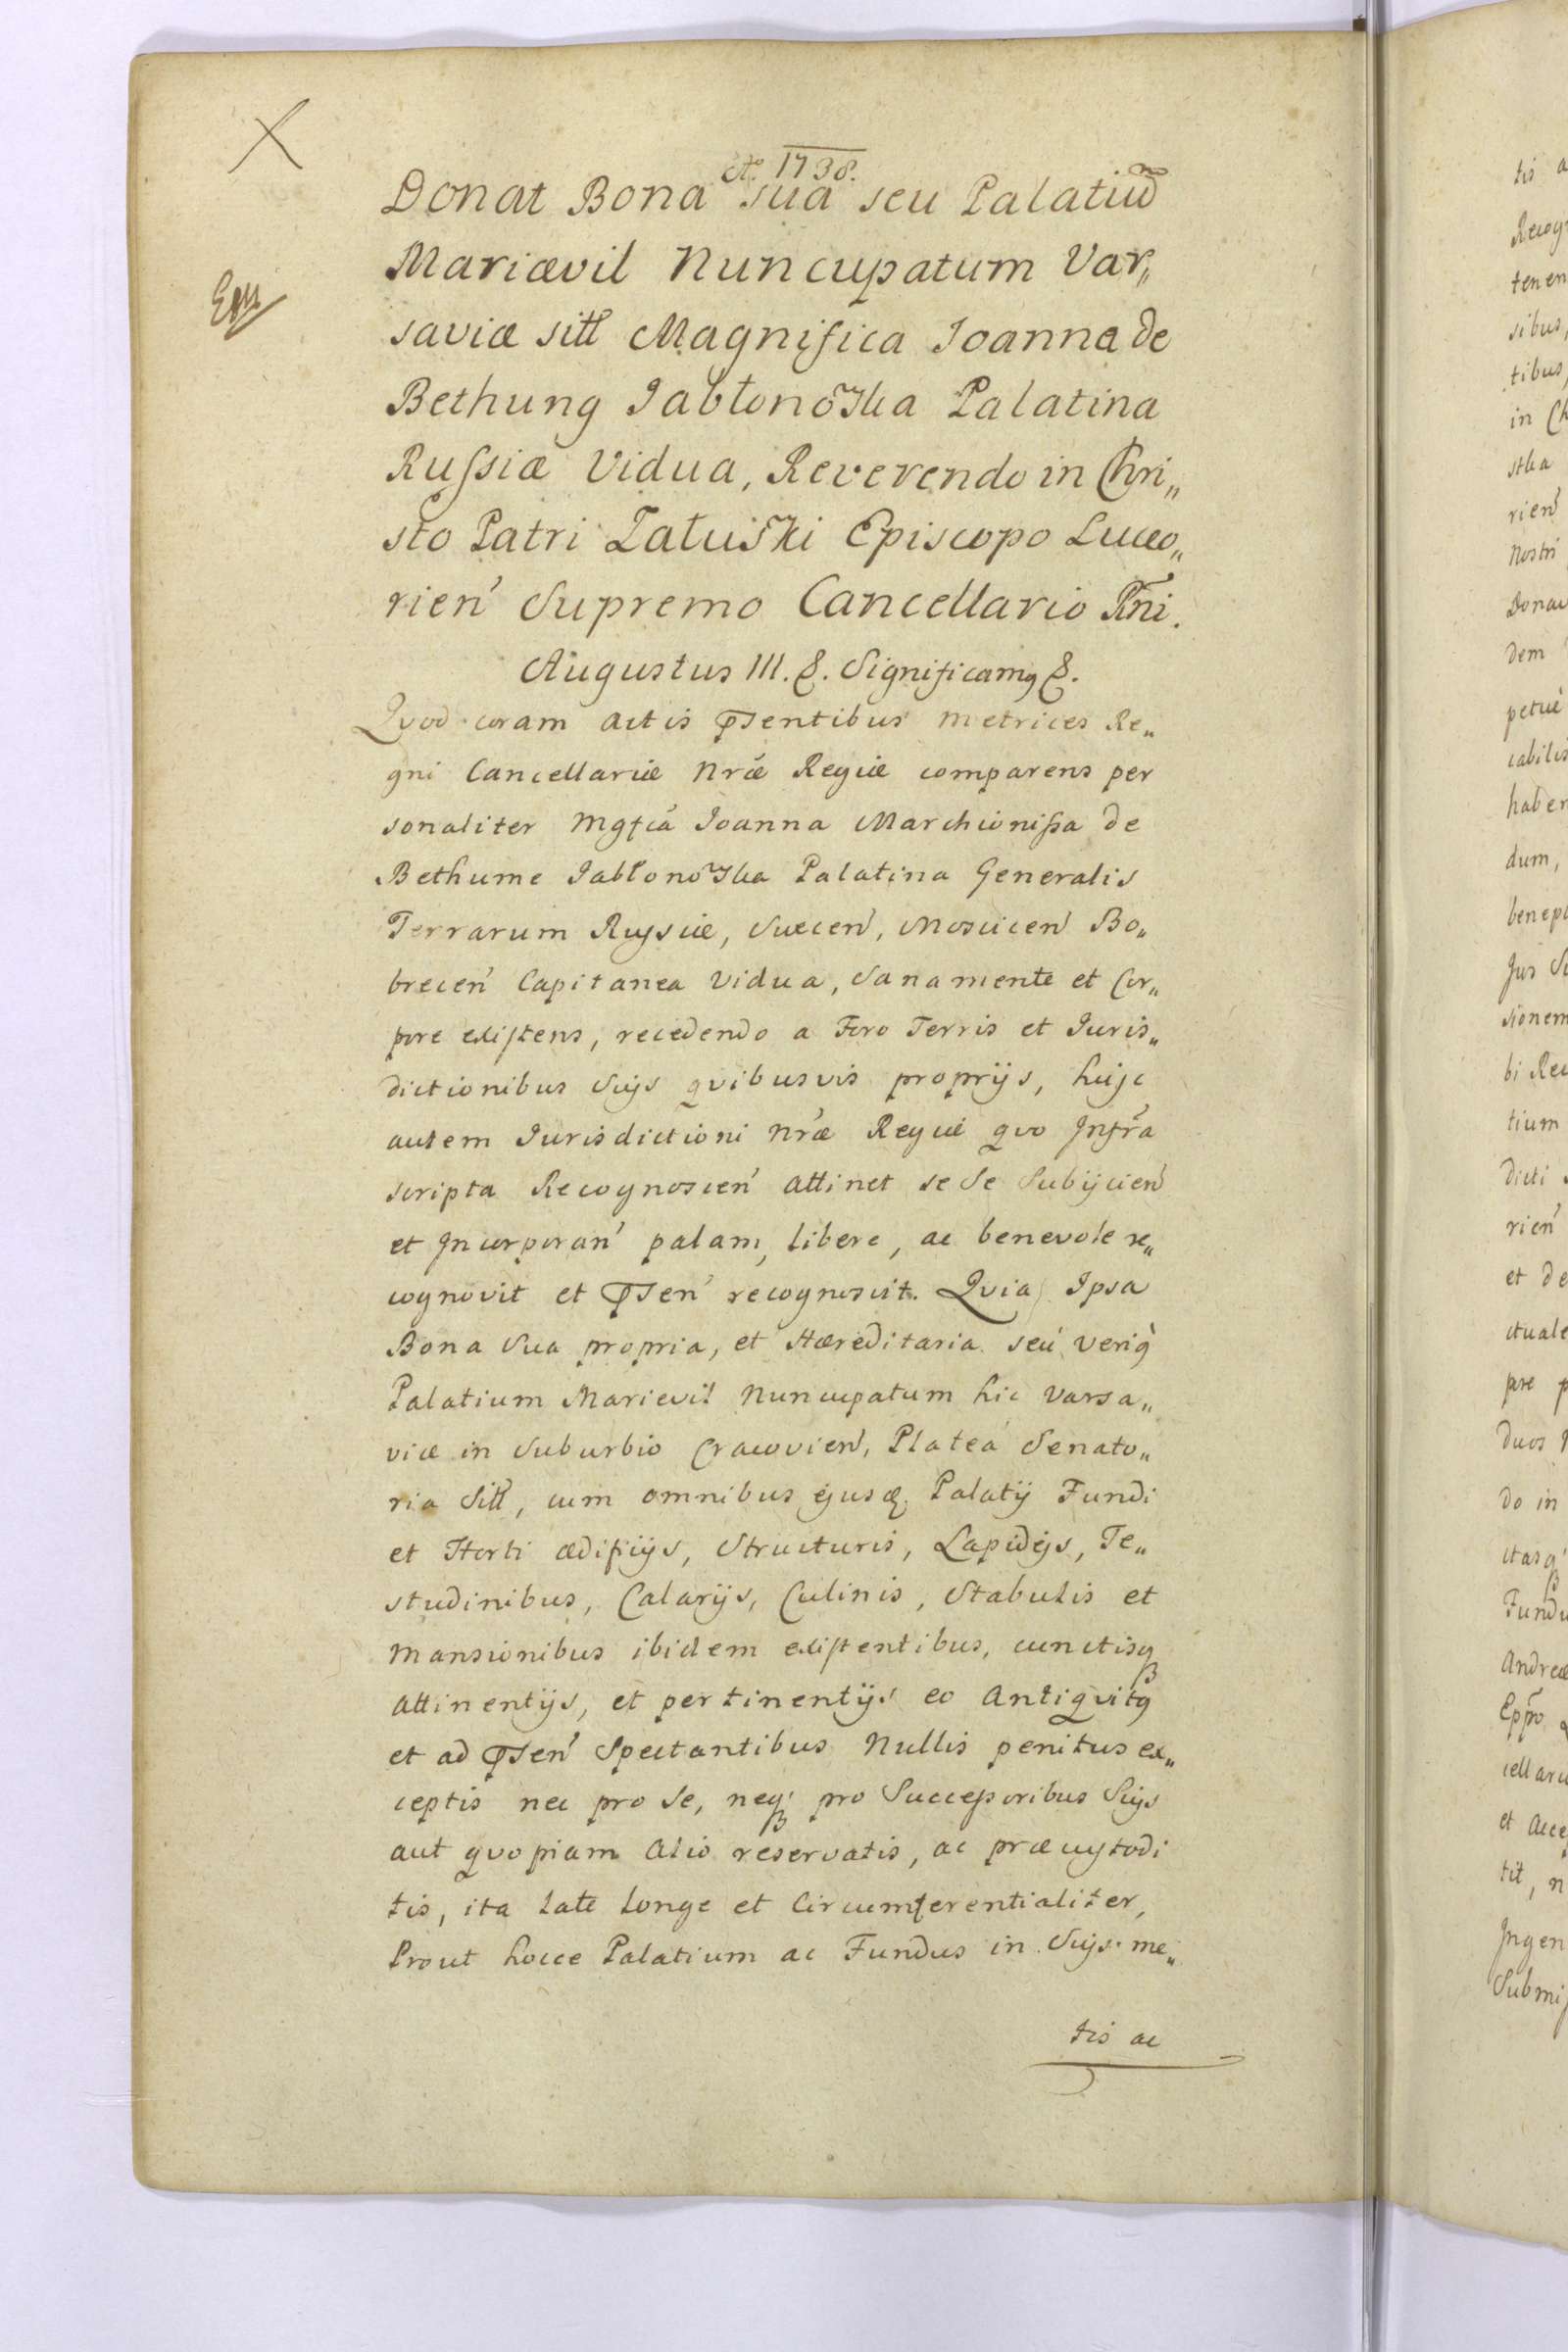 Ao. 1738.
Donat Bona sua seu Palatiū
Mariævil Nuncupatum Var„
saviæ sitt Magnifica Joanna de
Bethung Jabłonoska Palatina
Russiæ Vidua, Reverendo in Chri„
sto Patri Załuiski Episcopo Luceo„
rien̄ Supremo Cancellario Rni.
Augustus III. &. Significamq &.
Qvod coram actis pṣentibus metrices Re„
gni Cancellariæ Nræ Regiæ comparens per
sonaliter Mgfca Joanna Marchionissa de
Bethume Jabłonoska Palatina Generalis
Terrarum Russiæ, Suecen, Moscicen Bo„
brecen Capitanea Vidua, Sana mente et Cor„
pore existens, recedendo a Foro Terris et Juris„
dictionibus Suis qvibusvis proprijs, huic
autem Jurisdictioni Nræ Regiæ qvo Infra
scripta Recognoscen attinet se se Subijcien
et Incorporan palam, libere, ac benevole re„
cognovit et pṣen recognoscit. Qvia Ipsa
Bona Sua propria, et Hæreditaria seu veriq
Palatium Marievil Nuncupatum hic Varsa„
viæ in Suburbio Cracovien, Platea Senato„
ria Sitt, cum omnibus ejusq Palatij Fundi
et Horti ædificijs, Structuris, Lapideis, Te„
studinibus, Calarijs, Culinis, Stabulis et
Mansionibus ibidem existentibus, cunctisq
Attinentijs, et pertinentijs eo Antiqvitq
et ad pṣen Spectantibus Nullis penitus ex„
ceptis nec pro Se, neq pro Successoribus Suis
aut qvopiam Alio reservatis, ac præcustodi
tis, ita Late Longe et Circumferentialiter,
Prout hocce Palatium ac Fundus in Suis me„
tis ac
tis a
Recog
tenen
sibus,
tibus,
in Ch
ska
rien
Nostri
Donav
dem
petue
cabilis
haben
dum,
benepl
Jus
sionem
bi Rec
tium
dicti
rien
et de
ctuale
pre p
duos
do in
ctasq
Fundu
Andreæ
Eppo
cellari
et acce
tit, n
Ingen
Submis